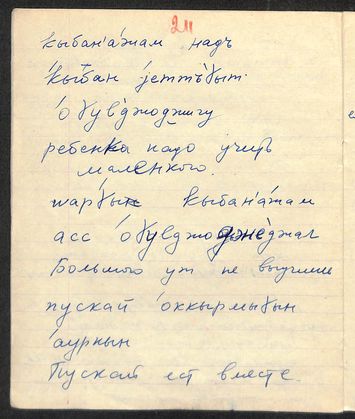 24
кыбан'а́жам надъ
кы́бан је́ттъɣыт.
о́ɣувджоджигу
ребенка надо учить
маленького.
шарɣын кыбан'а́жам
асс о́ɣувджо
Большого уж не выучишь
пускай о́ккырмыɣын
а́урнын
Пускай ест вместе.